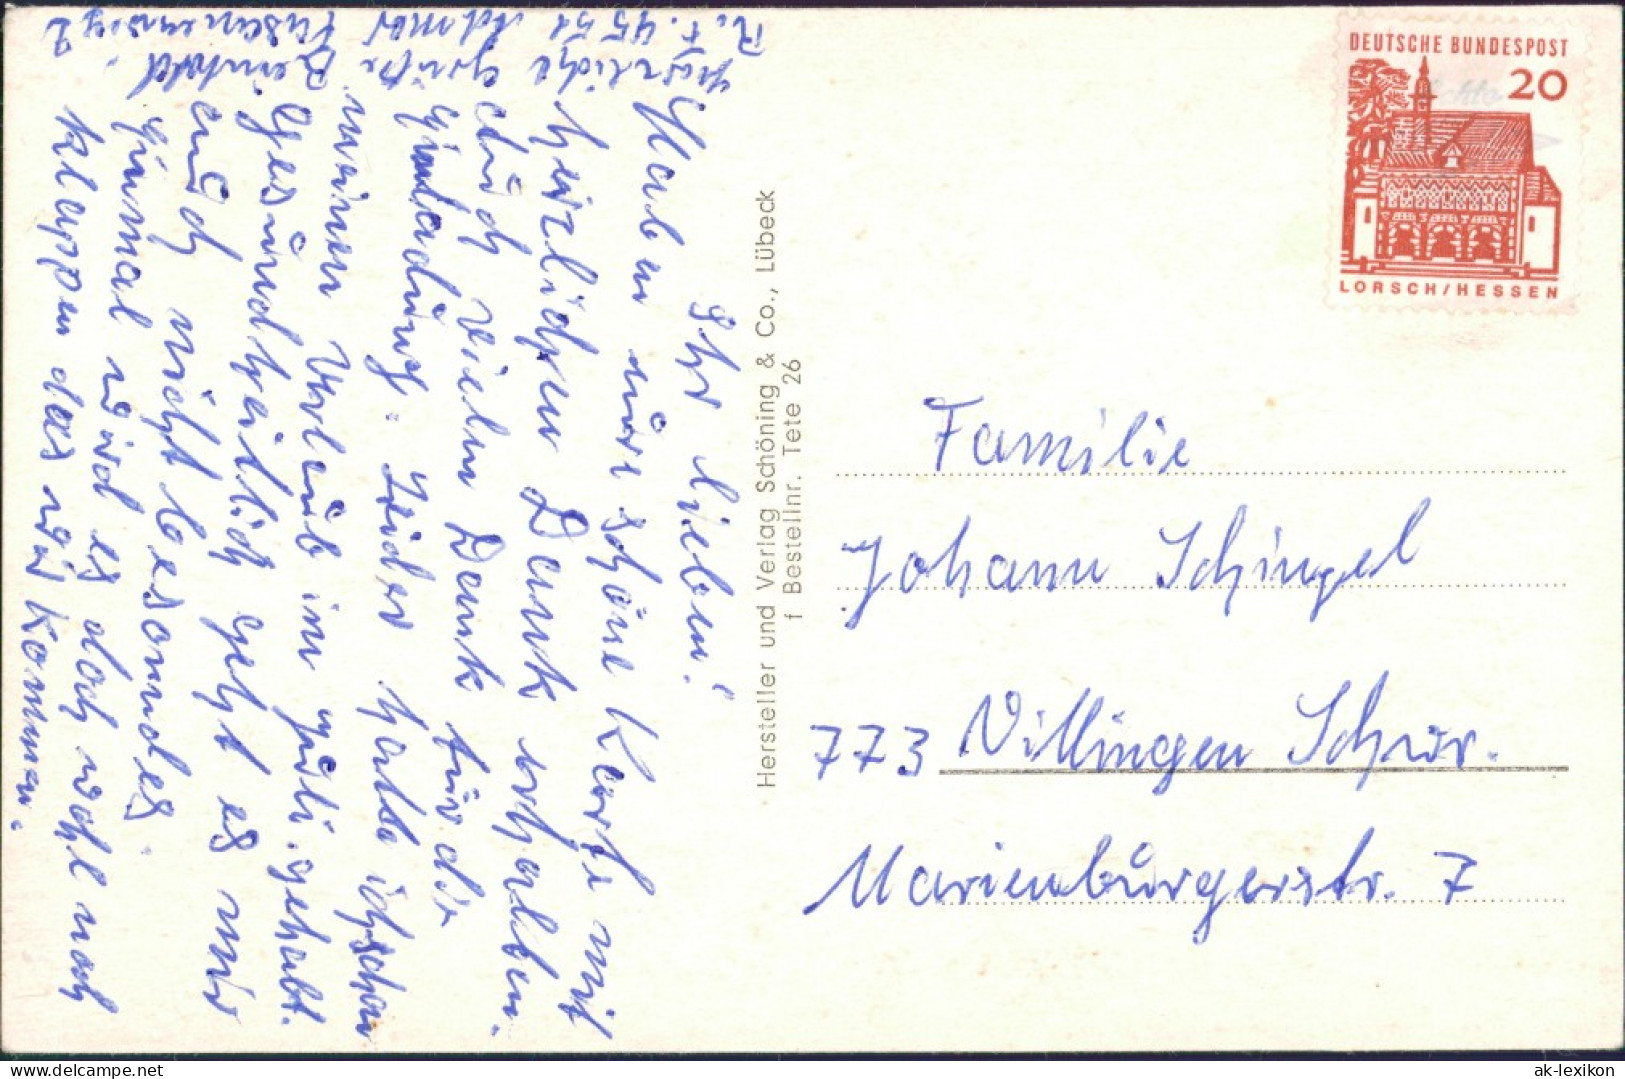 R. t. 4551
Herzliche Grüße
Ihr lieben!
Haben eure schöne Karte mit
herzlichen Dank erhalten.
Auch vielen Dank für die
Einladung. Leider habe ich schon
meinen Urleub im Juli gehabt.
Gesundheitlich geht es mir
auch nicht besonders.
Einmal wird es doch wohl noch
klappen das wir kommen.
Hersteller und Verlag Schöning & Co., Lübeck
f Bestellnr. Tete 26
DEUTSCHE BUNDESPOST
20
LORSCH/HESSEN
Familie
Johann Schingel
773 Villingen Schw.
Marienburgerstr. 7
delcampe.net
ak-lexikon